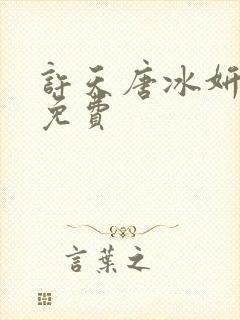 許天唐冰妍
免費
言葉之